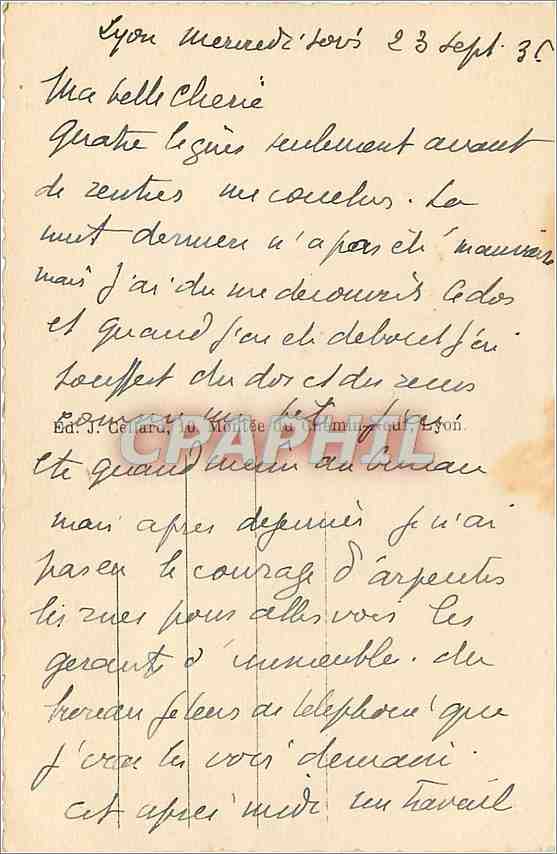 Lyon mercredi soir 23 sept. 35
Ma belle Cherie
Quatre lignes seulement avant
de rentrer me coucher. La
nuit derniere n'a pas été mauvaise
mais j'ai du me decouvrir le dos
et quand j'ai été debout j'ai
souffert du dos et du reins
comme une bete. j'ai
Ed. J. Cellard, 10, Montée du Chemin-Neuf, Lyon.
CPAPHIL
été quand meme au bureau
mais apres dejeuner je n'ai
pas eu le courage d'arpenter
les rues pour aller voir les
gerants d'immeubles. du
bureau je leur ai telephoné que
j'irai les voir demain.
Cet apres midi un travail